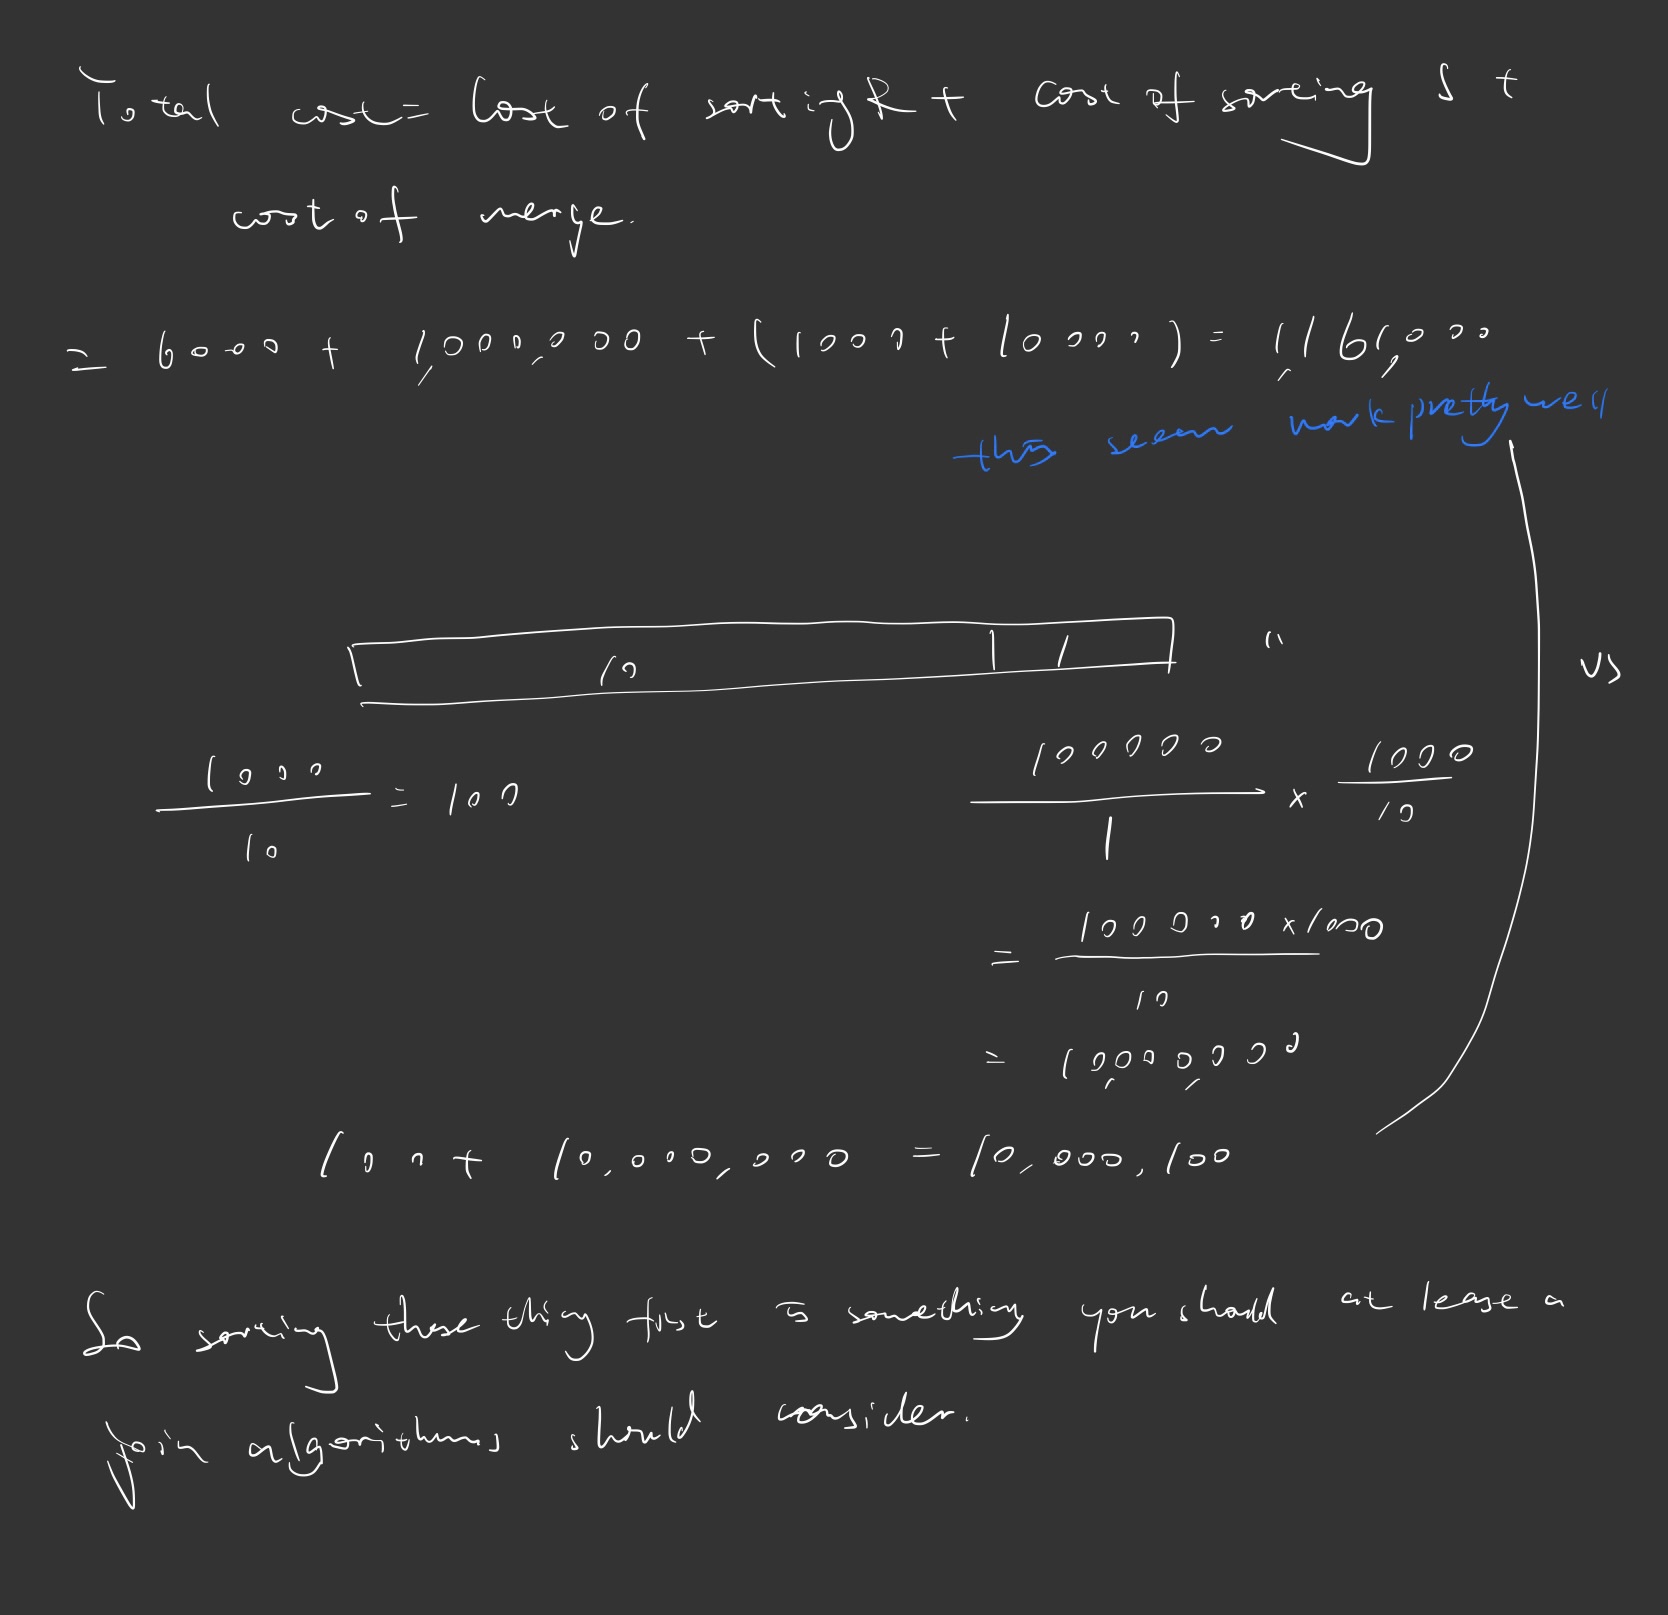 Total cost = Cost of sorting R + cost of sorting S +
cost of merge.
= 6000 + 1,000,000 + (1000 + 10000) = 1,161,000
this seem work pretty well
10 | 1 "
vs
1000 / 10 = 100
100000 / 1 × 1000 / 10
= 100000 × 1000 / 10
= 10,000,000
100 + 10,000,000 = 10,000,100
So sorting these thing first is something you should at lease a
join algorithms should consider.